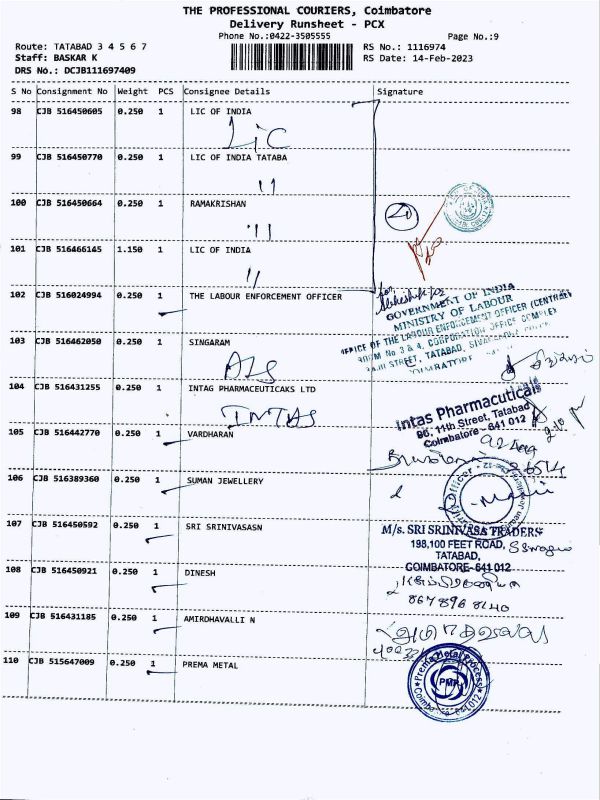 THE PROFESSIONAL COURIERS, Coimbatore
Delivery Runsheet - PCX
Phone No.:0422-3505555
Page No.:9
Route: TATABAD 3 4 5 6 7
RS No.: 1116974
Staff: BASKAR K
RS Date: 14-Feb-2023
DRS No.: DCJB111697409
S No Consignment No Weight PCS Consignee Details Signature
98 CJB 516450605 0.250 1 LIC OF INDIA
LIC
99 CJB 516450770 0.250 1 LIC OF INDIA TATABA
11
100 CJB 516450664 0.250 1 RAMAKRISHAN
11
101 CJB 516466145 1.150 1 LIC OF INDIA
11
102 CJB 516024994 0.250 1 THE LABOUR ENFORCEMENT OFFICER
for
GOVERNMENT OF INDIA
MINISTRY OF LABOUR
OFFICE OF THE LABOUR ENFORCEMENT OFFICER (CENTRAL)
ROOM No 3 & 4, CORPORATION OFFICE COMPLEX
STREET, TATABAD,
103 CJB 516462050 0.250 1 SINGARAM
104 CJB 516431255 0.250 1 INTAG PHARMACEUTICAKS LTD
INTAS
Intas Pharmaceuticals
96, 11th Street, Tatabad
Coimbatore - 641 012
105 CJB 516442770 0.250 1 VARDHARAN
106 CJB 516389360 0.250 1 SUMAN JEWELLERY
107 CJB 516450592 0.250 1 SRI SRINIVASASN
M/s. SRI SRINIVASA TRADERS
198,100 FEET ROAD,
TATABAD,
COIMBATORE-641 012
108 CJB 516450921 0.250 1 DINESH
867 896 8140
109 CJB 516431185 0.250 1 AMIRDHAVALLI N
110 CJB 515647009 0.250 1 PREMA METAL
Prema Metal Process
PMP
Coimbatore - 641 012